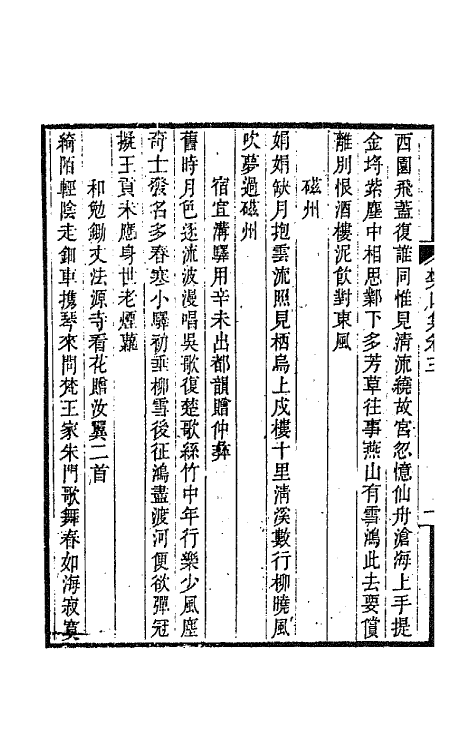 西園飛蓋復誰同惟見清流繞故宮忽憶仙舟滄海上手提
金埒紫塵中相思鄴下多芳草往事燕山有雪鴻此去要償
離別恨酒樓泥飲對東風
磁州
娟娟缺月抱雲流照見栖烏上戍樓十里清溪數行柳曉風
吹夢過磁州
宿宜溝驛用辛未出都韻贈仲彝
舊時月色逐流波漫唱吳歌復楚歌絲竹中年行樂少風塵
奇士發名多春寒小驛初垂柳雪後征鴻盡渡河便欲彈冠
擬王貢未應身世老煙蘿
和勉鋤丈法源寺看花贈汝翼二首
綺陌輕陰走鈿車攜琴來問梵王家朱門歌舞春如海寂寞